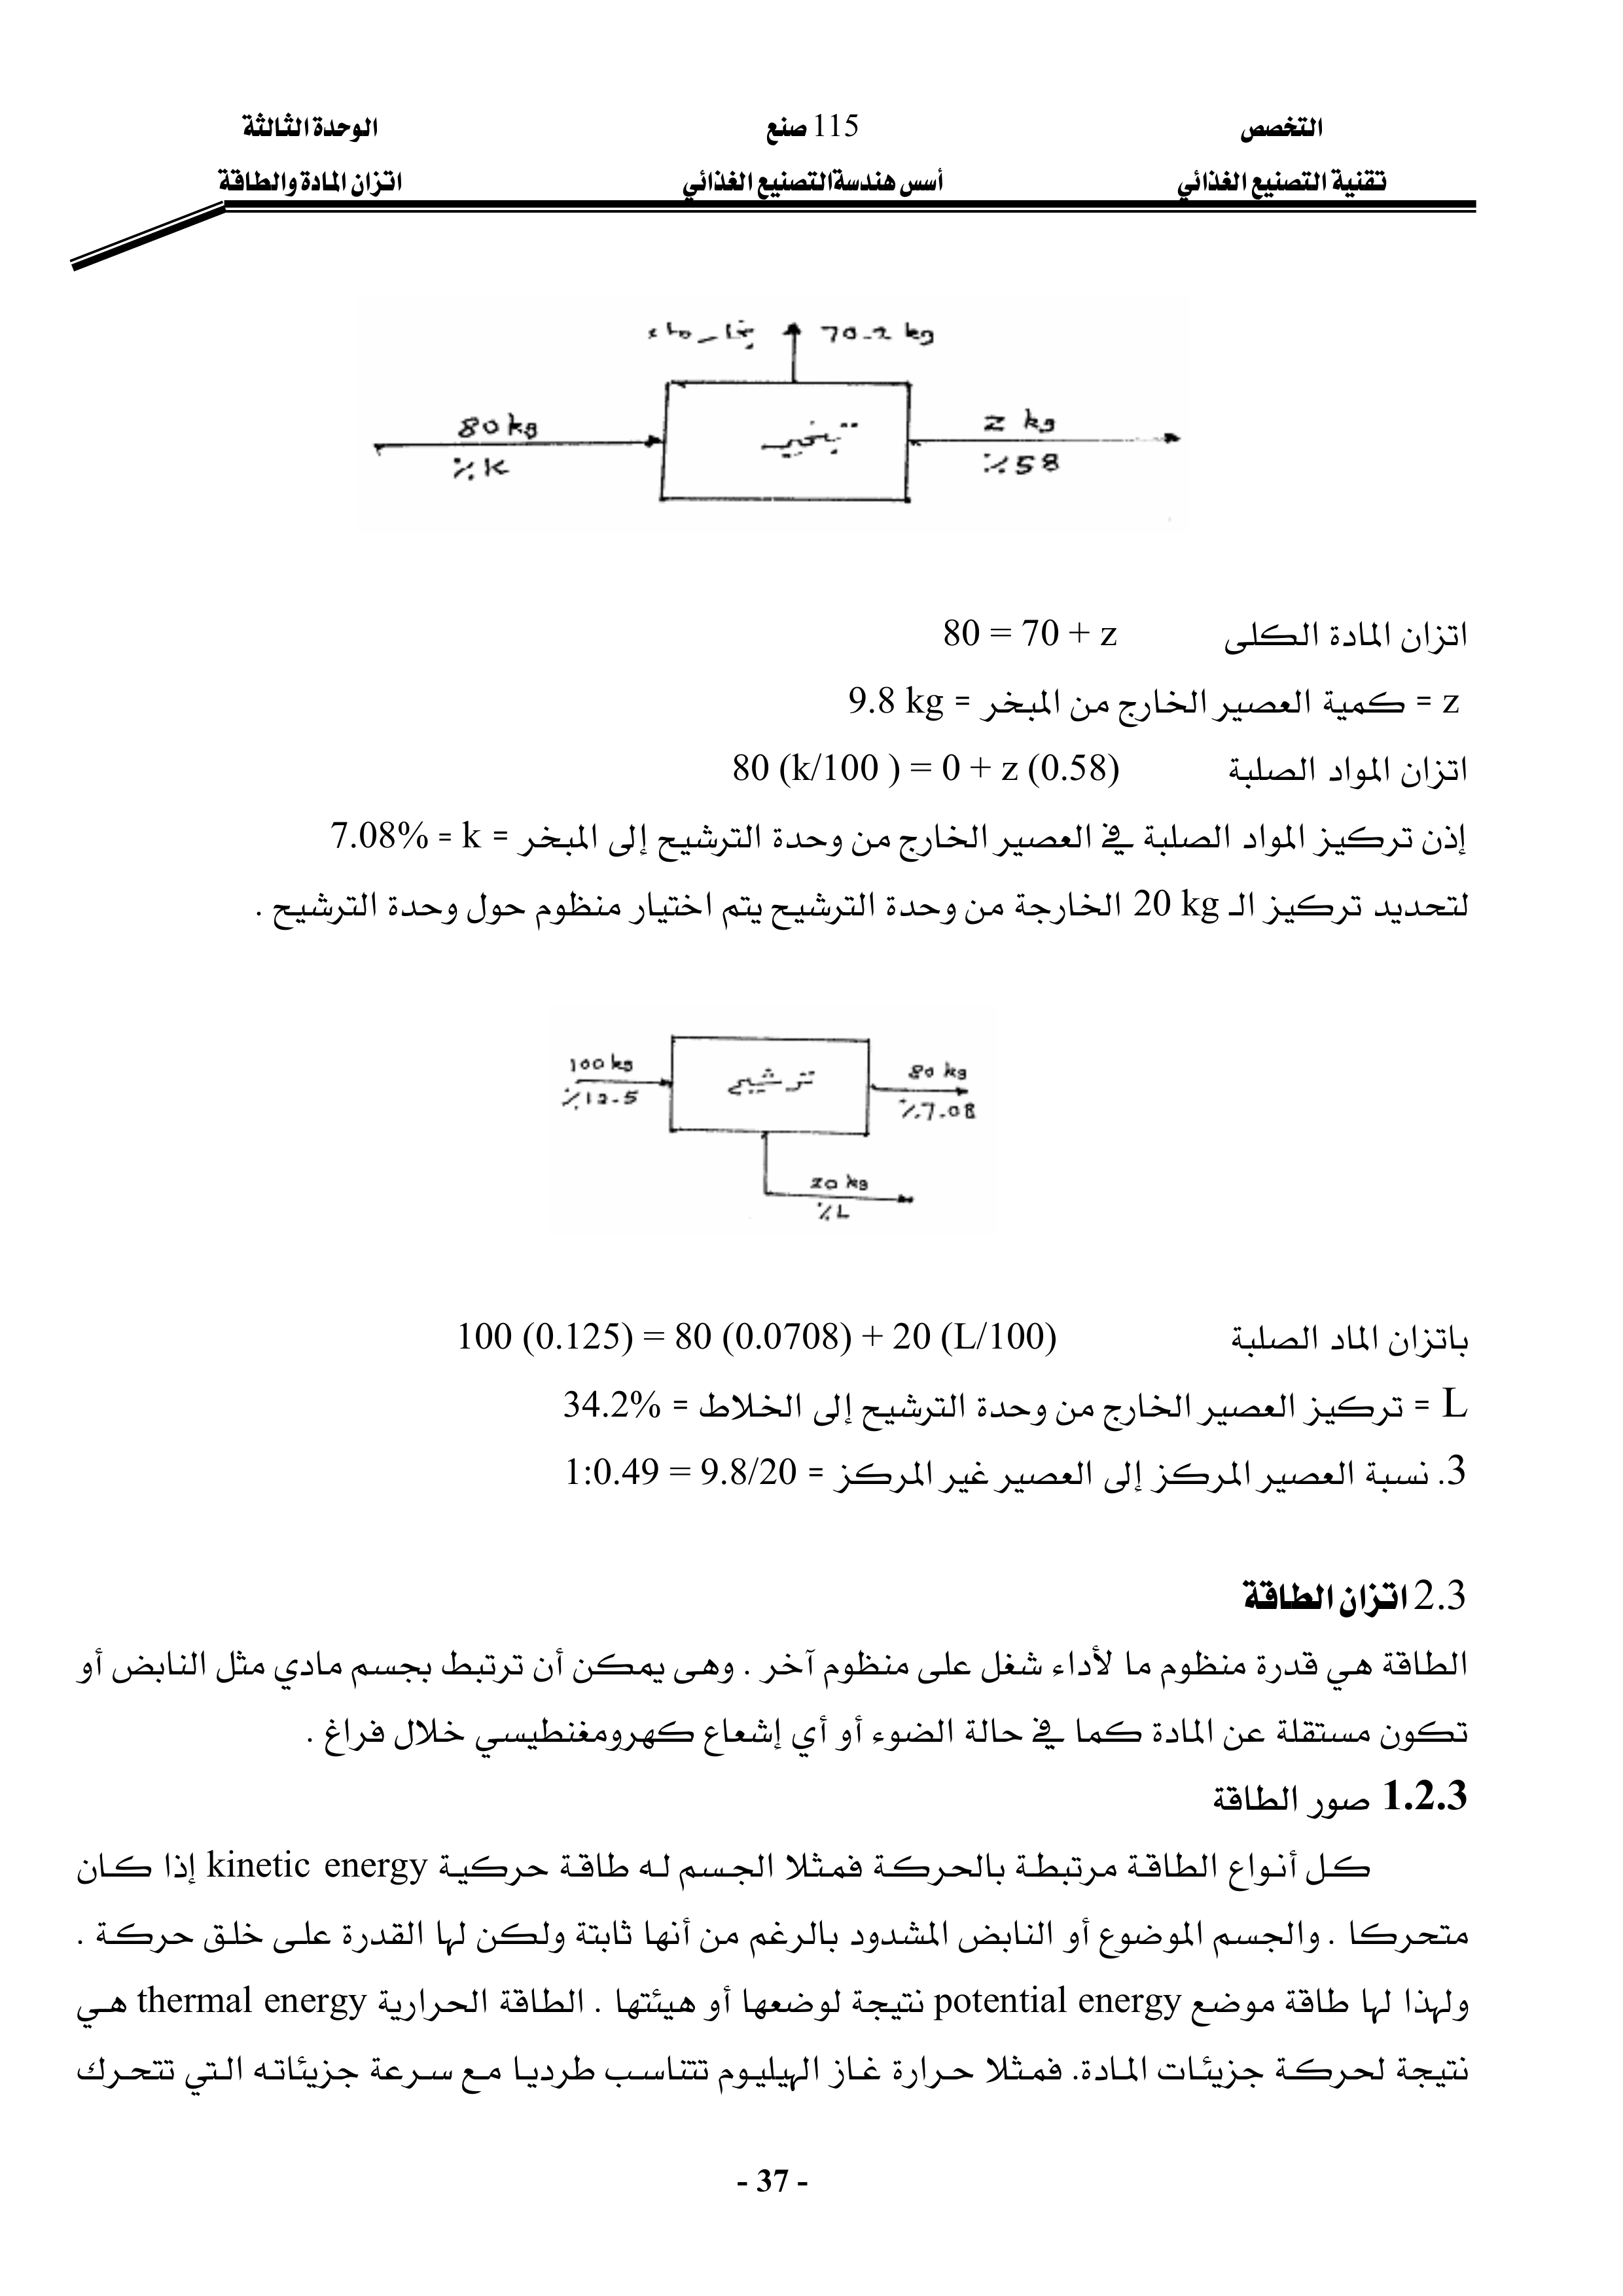 التخصص 115 صنع الوحدة الثالثة
تقنية التصنيع الغذائي أسس هندسةالتصنيع الغذائي اتزان المادة والطاقة
بخار ماء 70.2 kg
80 kg تبخير z kg
٪K ٪58
اتزان المادة الكلى 80 = 70 + z
z = كمية العصير الخارج من المبخر = 9.8 kg
اتزان المواد الصلبة 80 (k/100 ) = 0 + z (0.58)
إذن تركيز المواد الصلبة في العصير الخارج من وحدة الترشيح إلى المبخر = k = 7.08%
لتحديد تركيز الـ 20 kg الخارجة من وحدة الترشيح يتم اختيار منظوم حول وحدة الترشيح .
100 kg ترشيح 80 kg
٪12.5 ٪7.08
20 kg
٪L
باتزان الماد الصلبة 100 (0.125) = 80 (0.0708) + 20 (L/100)
L = تركيز العصير الخارج من وحدة الترشيح إلى الخلاط = 34.2%
3. نسبة العصير المركز إلى العصير غير المركز = 9.8/20 = 1:0.49
2.3 اتزان الطاقة
الطاقة هي قدرة منظوم ما لأداء شغل على منظوم آخر . وهى يمكن أن ترتبط بجسم مادي مثل النابض أو
تكون مستقلة عن المادة كما في حالة الضوء أو أي إشعاع كهرومغنطيسي خلال فراغ .
1.2.3 صور الطاقة
كل أنواع الطاقة مرتبطة بالحركة فمثلا الجسم له طاقة حركية kinetic energy إذا كان
متحركا . والجسم الموضوع أو النابض المشدود بالرغم من أنها ثابتة ولكن لها القدرة على خلق حركة .
ولهذا لها طاقة موضع potential energy نتيجة لوضعها أو هيئتها . الطاقة الحرارية thermal energy هي
نتيجة لحركة جزيئات المادة. فمثلا حرارة غاز الهيليوم تتناسب طرديا مع سرعة جزيئاته التي تتحرك
- 37 -